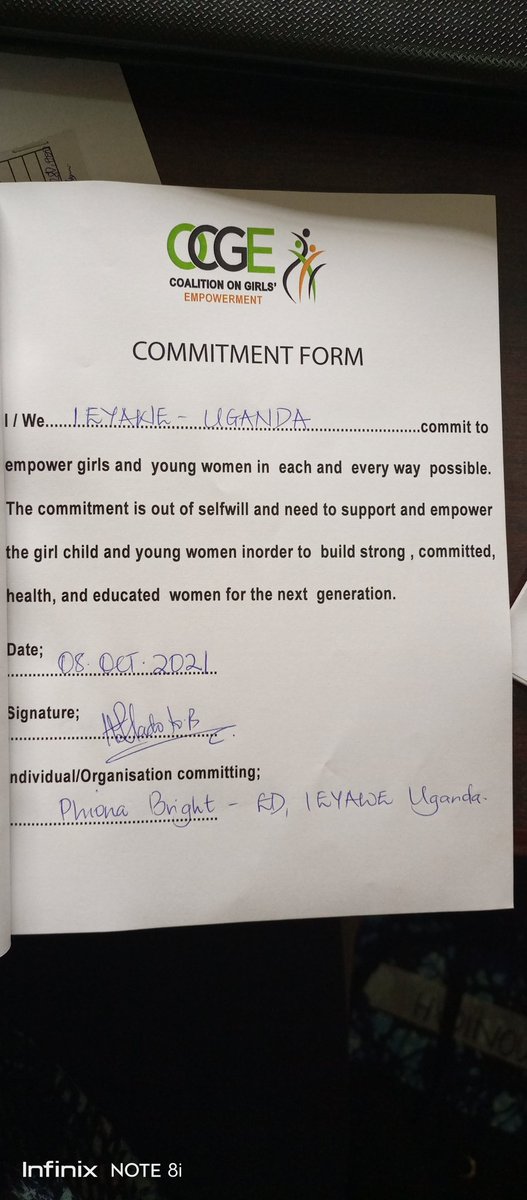 CCGE
COALITION ON GIRLS'
EMPOWERMENT
COMMITMENT FORM
I / We......IEYAWE - UGANDA......commit to
empower girls and young women in each and every way possible.
The commitment is out of selfwill and need to support and empower
the girl child and young women inorder to build strong , committed,
health, and educated women for the next generation.
Date;
08. OCT. 2021
Signature;
ndividual/Organisation committing;
Phiona Bright - ED, IEYAWE Uganda.
Infinix NOTE 8i